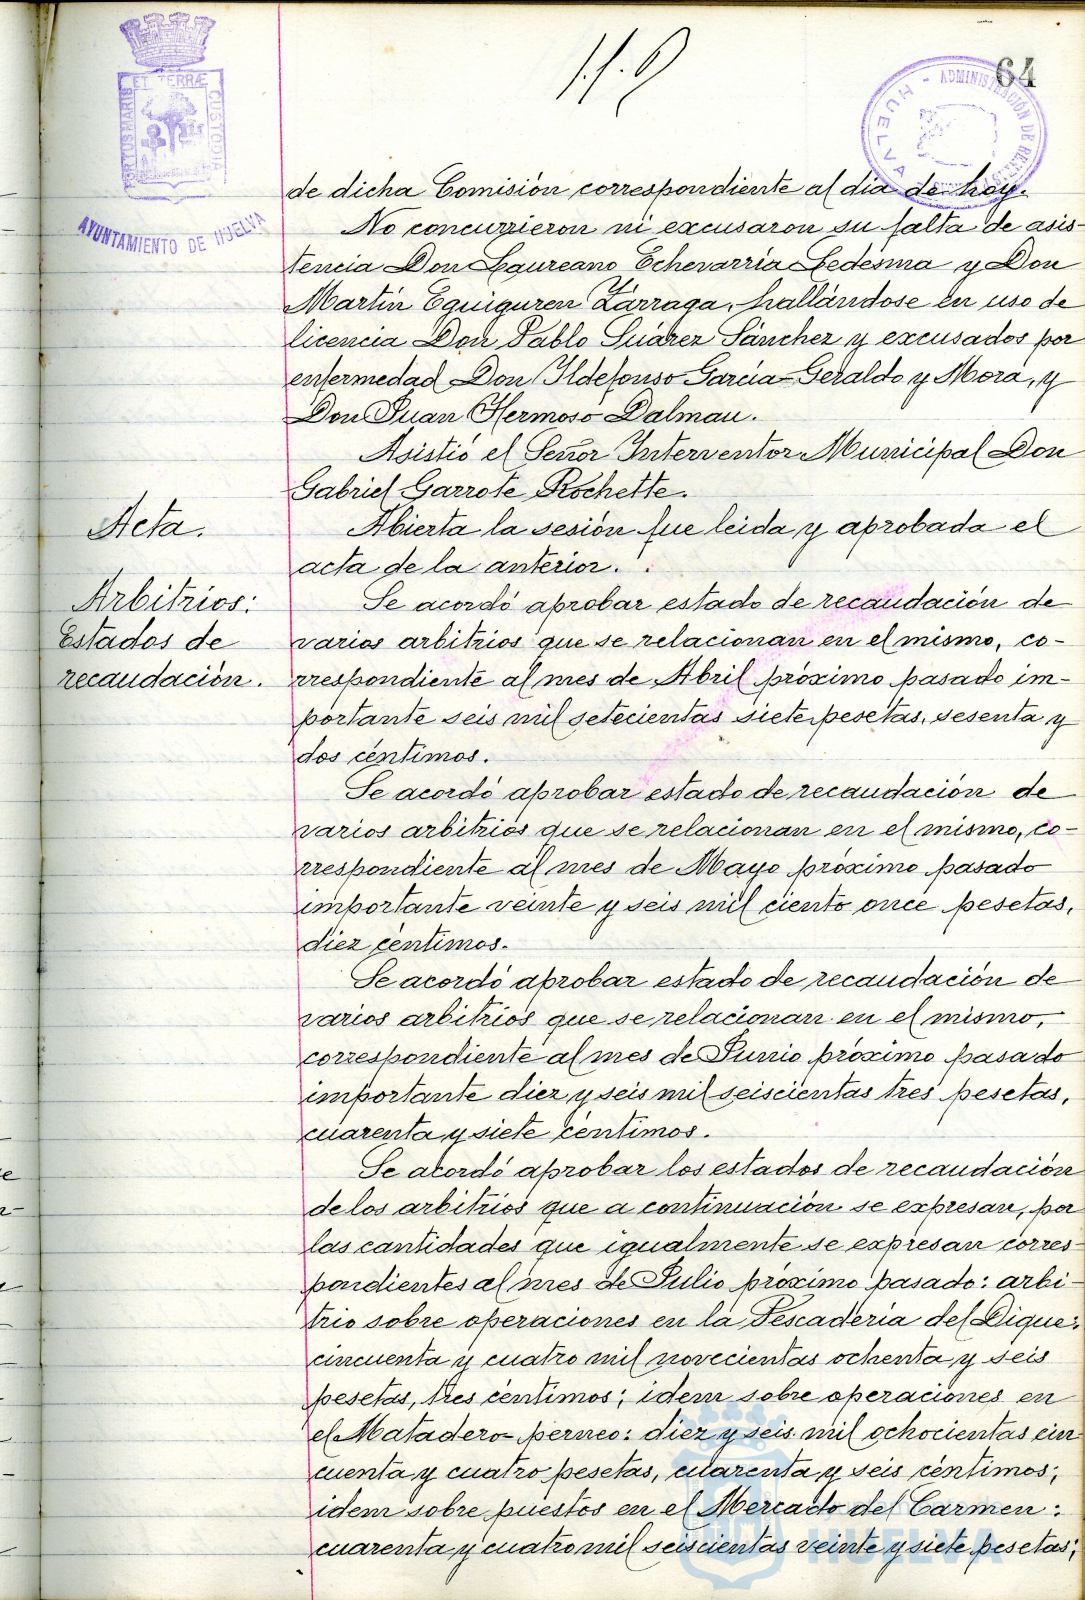 64
PORTUS MARIS ET TERRÆ CUSTODIA
AYUNTAMIENTO DE HUELVA
ADMINISTRACIÓN DE
HUELVA
de dicha Comisión correspondiente al día de hoy.
No concurrieron ni excusaron su falta de asis-
tencia Don Laureano Echevarría Ledesma y Don
Martín Eguiguren Zárraga, hallándose en uso de
licencia Don Pablo Suárez Sánchez y excusados por
enfermedad Don Ildefonso García-Geraldo y Mora, y
Don Juan Hermoso Dalmau.
Asistió el Señor Interventor Municipal Don
Gabriel Garrote Rochette.
Acta.
Abierta la sesión fue leida y aprobada el
acta de la anterior.
Arbitrios:
Estados de
recaudación.
Se acordó aprobar estado de recaudación de
varios arbitrios que se relacionan en el mismo, co-
rrespondiente al mes de Abril próximo pasado im-
portante seis mil setecientas siete pesetas, sesenta y
dos céntimos.
Se acordó aprobar estado de recaudación de
varios arbitrios que se relacionan en el mismo, co-
rrespondiente al mes de Mayo próximo pasado
importante veinte y seis mil ciento once pesetas,
diez céntimos.
Se acordó aprobar estado de recaudación de
varios arbitrios que se relacionan en el mismo,
correspondiente al mes de Junio próximo pasado
importante diez y seis mil seiscientas tres pesetas,
cuarenta y siete céntimos.
Se acordó aprobar los estados de recaudación
de los arbitrios que a continuación se expresan, por
las cantidades que igualmente se expresan corres-
pondientes al mes de Julio próximo pasado: arbi-
trio sobre operaciones en la Pescadería del Dique:
cincuenta y cuatro mil novecientas ochenta y seis
pesetas, tres céntimos; idem sobre operaciones en
el Matadero-perneo: diez y seis mil ochocientas cin
cuenta y cuatro pesetas, cuarenta y seis céntimos;
idem sobre puestos en el Mercado del Carmen:
cuarenta y cuatro mil seiscientas veinte y siete pesetas;
HUELVA